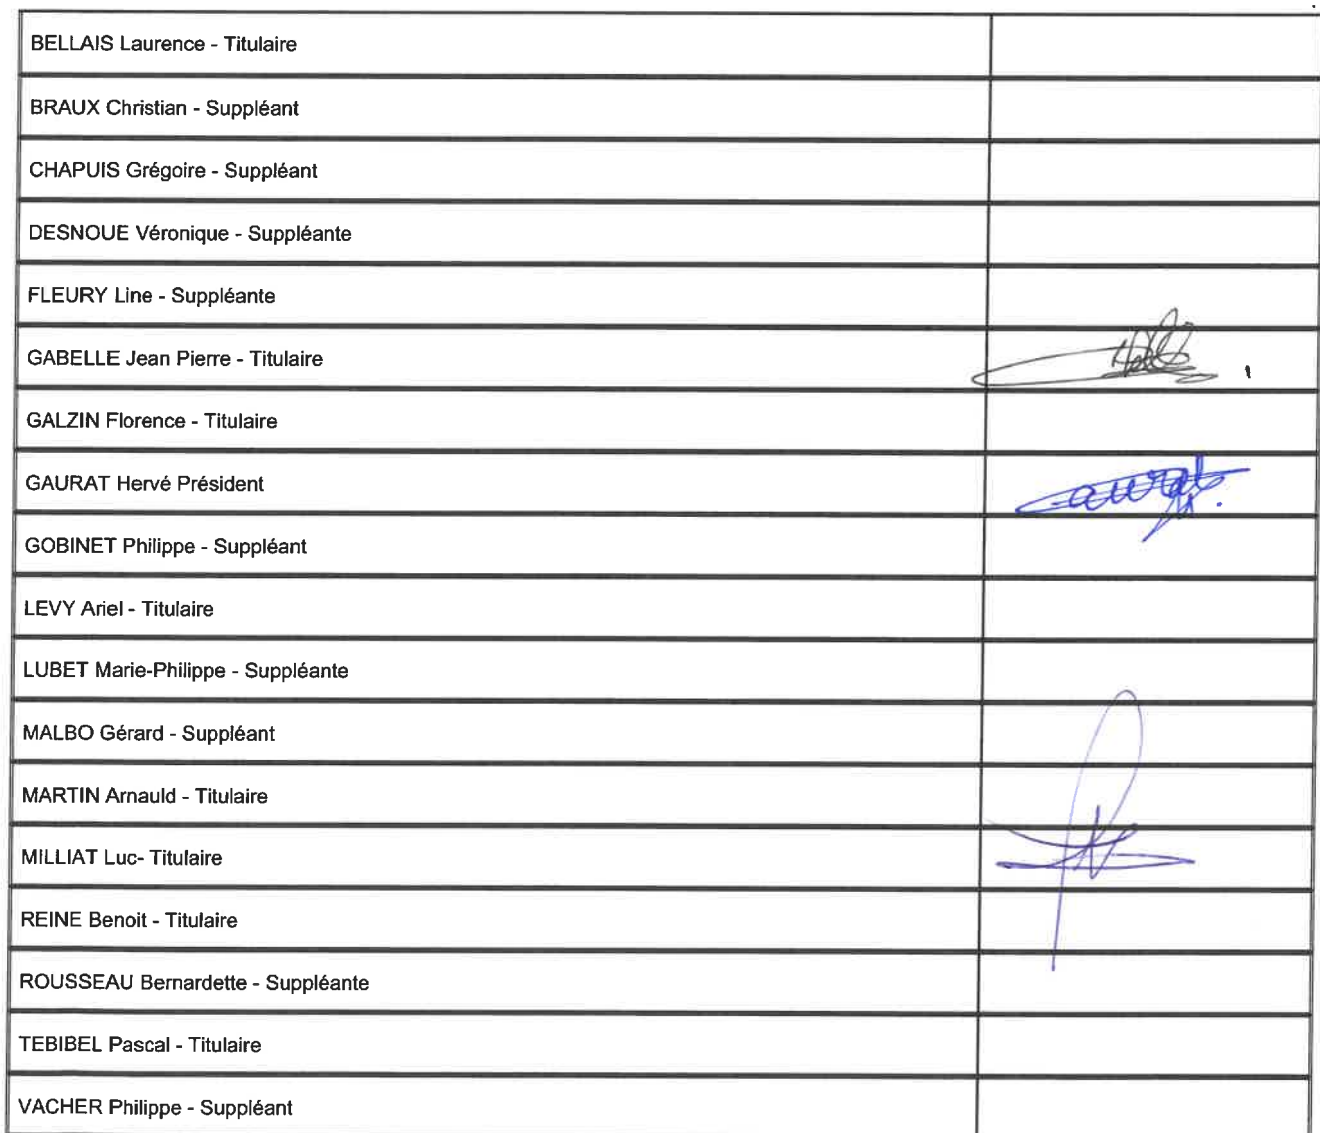 BELLAIS Laurence - Titulaire
BRAUX Christian - Suppléant
CHAPUIS Grégoire - Suppléant
DESNOUE Véronique - Suppléante
FLEURY Line - Suppléante
GABELLE Jean Pierre - Titulaire
GALZIN Florence - Titulaire
GAURAT Hervé Président
GOBINET Philippe - Suppléant
LEVY Ariel - Titulaire
LUBET Marie-Philippe - Suppléante
MALBO Gérard - Suppléant
MARTIN Arnauld - Titulaire
MILLIAT Luc- Titulaire
REINE Benoit - Titulaire
ROUSSEAU Bernardette - Suppléante
TEBIBEL Pascal - Titulaire
VACHER Philippe - Suppléant